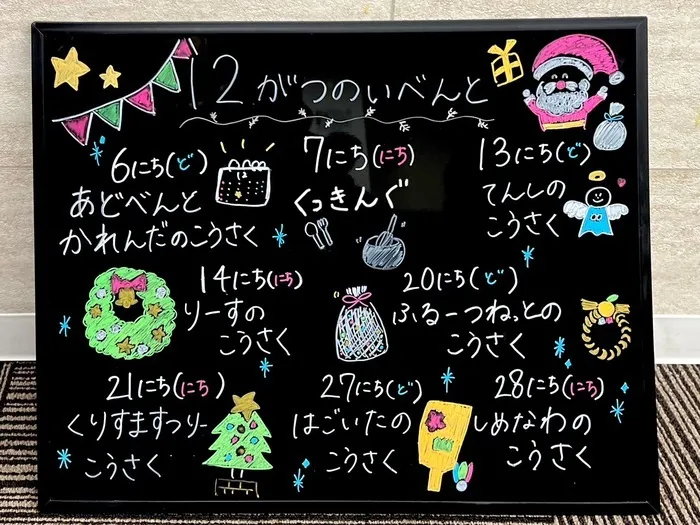 12がつのいべんと
6にち(ど)
あどべんと
かれんだのこうさく
12
7にち(にち)
くっきんぐ
13にち(ど)
てんしの
こうさく
14にち(にち)
りーすの
こうさく
20にち(ど)
ふるーつねっとの
こうさく
21にち(にち)
くりすますつりー
こうさく
27にち(ど)
はごいたの
こうさく
28にち(にち)
しめなわの
こうさく